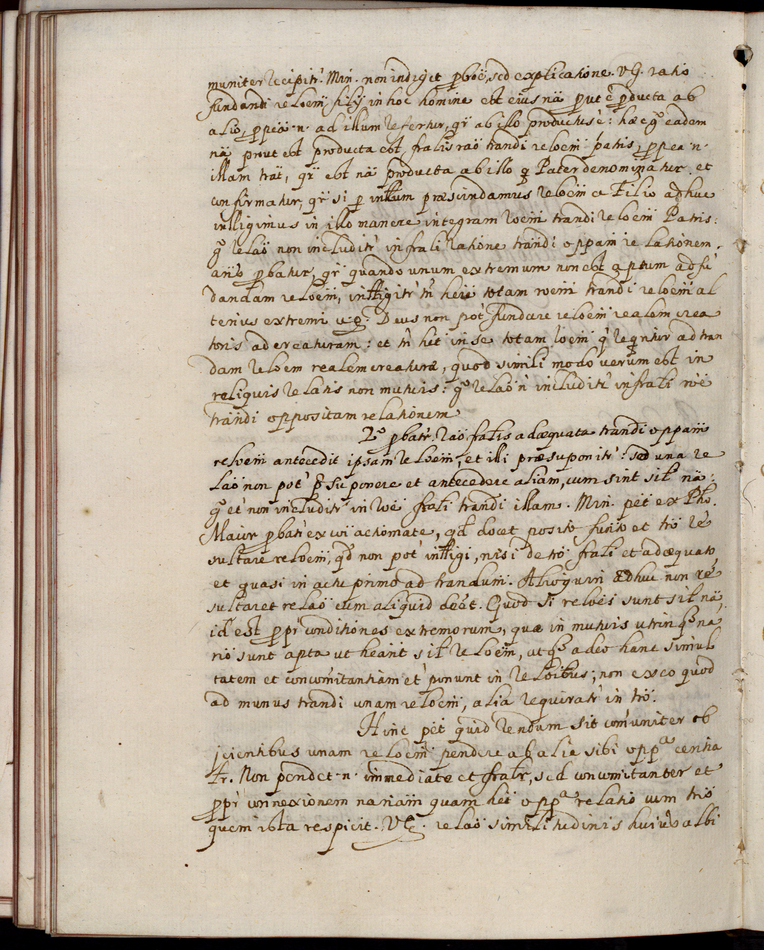 muniter recipitr. Min. non indiget pboë, sed explicatione. VG. ratio
fundandi reloem filij in hoc homine est eius nä, put ë pducta ab
alio, p eä .n. ad illum refertur, qr ab illo productus e: hæc gº eadem
nä prout est producta est fralis rao trandi reloem patris, p eä .n.
illam trat, qr est nä producta ab illo q Pater denominatur. et
confirmatur, qr si p inttum præscindamus reloem a Filio adhuc
intligimus in illo manere integram roem trandi reloem Patris:
gº relao non includitr in frali ratione trandi oppam relationem.
an's pbatur, qr quando unum extremum non est aptum ad fü
dandam reloem, intligitr tn here totam roem trandi reloem al
terius extremi v.g. Deus non pot fundare reloem realem crea
toris ad creaturam: et tn het in se totam roem q reqritur ad tran
dam reloem realem creaturæ, quod simili modo verum est in
reliquis relatis non mutuis: gº relao n includitr in frali roë
trandi oppositam relationem
2º pbatr. rao fralis adæquata trandi oppam
reloem antecedit ipsam reloem, et illi præsuponitr: sed una re
lao non pot p suponere et antecedere aliam, cum sint sil nä:
gº et non includitr in roë frali trandi illam. Min. pët ex Pho.
Maior pbatr ex coi actiomate, qd docet posito funto et tro re
sultare reloem, qd non pot intligi, nisi de tro frali et adæquato
et quasi in actu primo ad trandum. Alioquin adhuc non re
sultaret relao cum aliquid deët. Quod si reloës sunt sil nä
id est ppr conditiones extremorum, quæ in mutuis utrinq na
rio sunt apta ut heant sil reloem, atq adeo hanc simul
tatem et concomitantiam et ponunt in reloibus; non ex eo quod
ad munus trandi unam reloem, alia requiratr in tro.
Hinc pët quid dicendum sit comuniter ob
jcientibus unam reloem pendere ab alia sibi oppª centia
tr. Non pendet .n. immediate et fralr, sed concomitanter et
ppr connexionem nariam quam het oppª relatio cum tro
quem ista respicit. VG. relao similitudinis huius albi